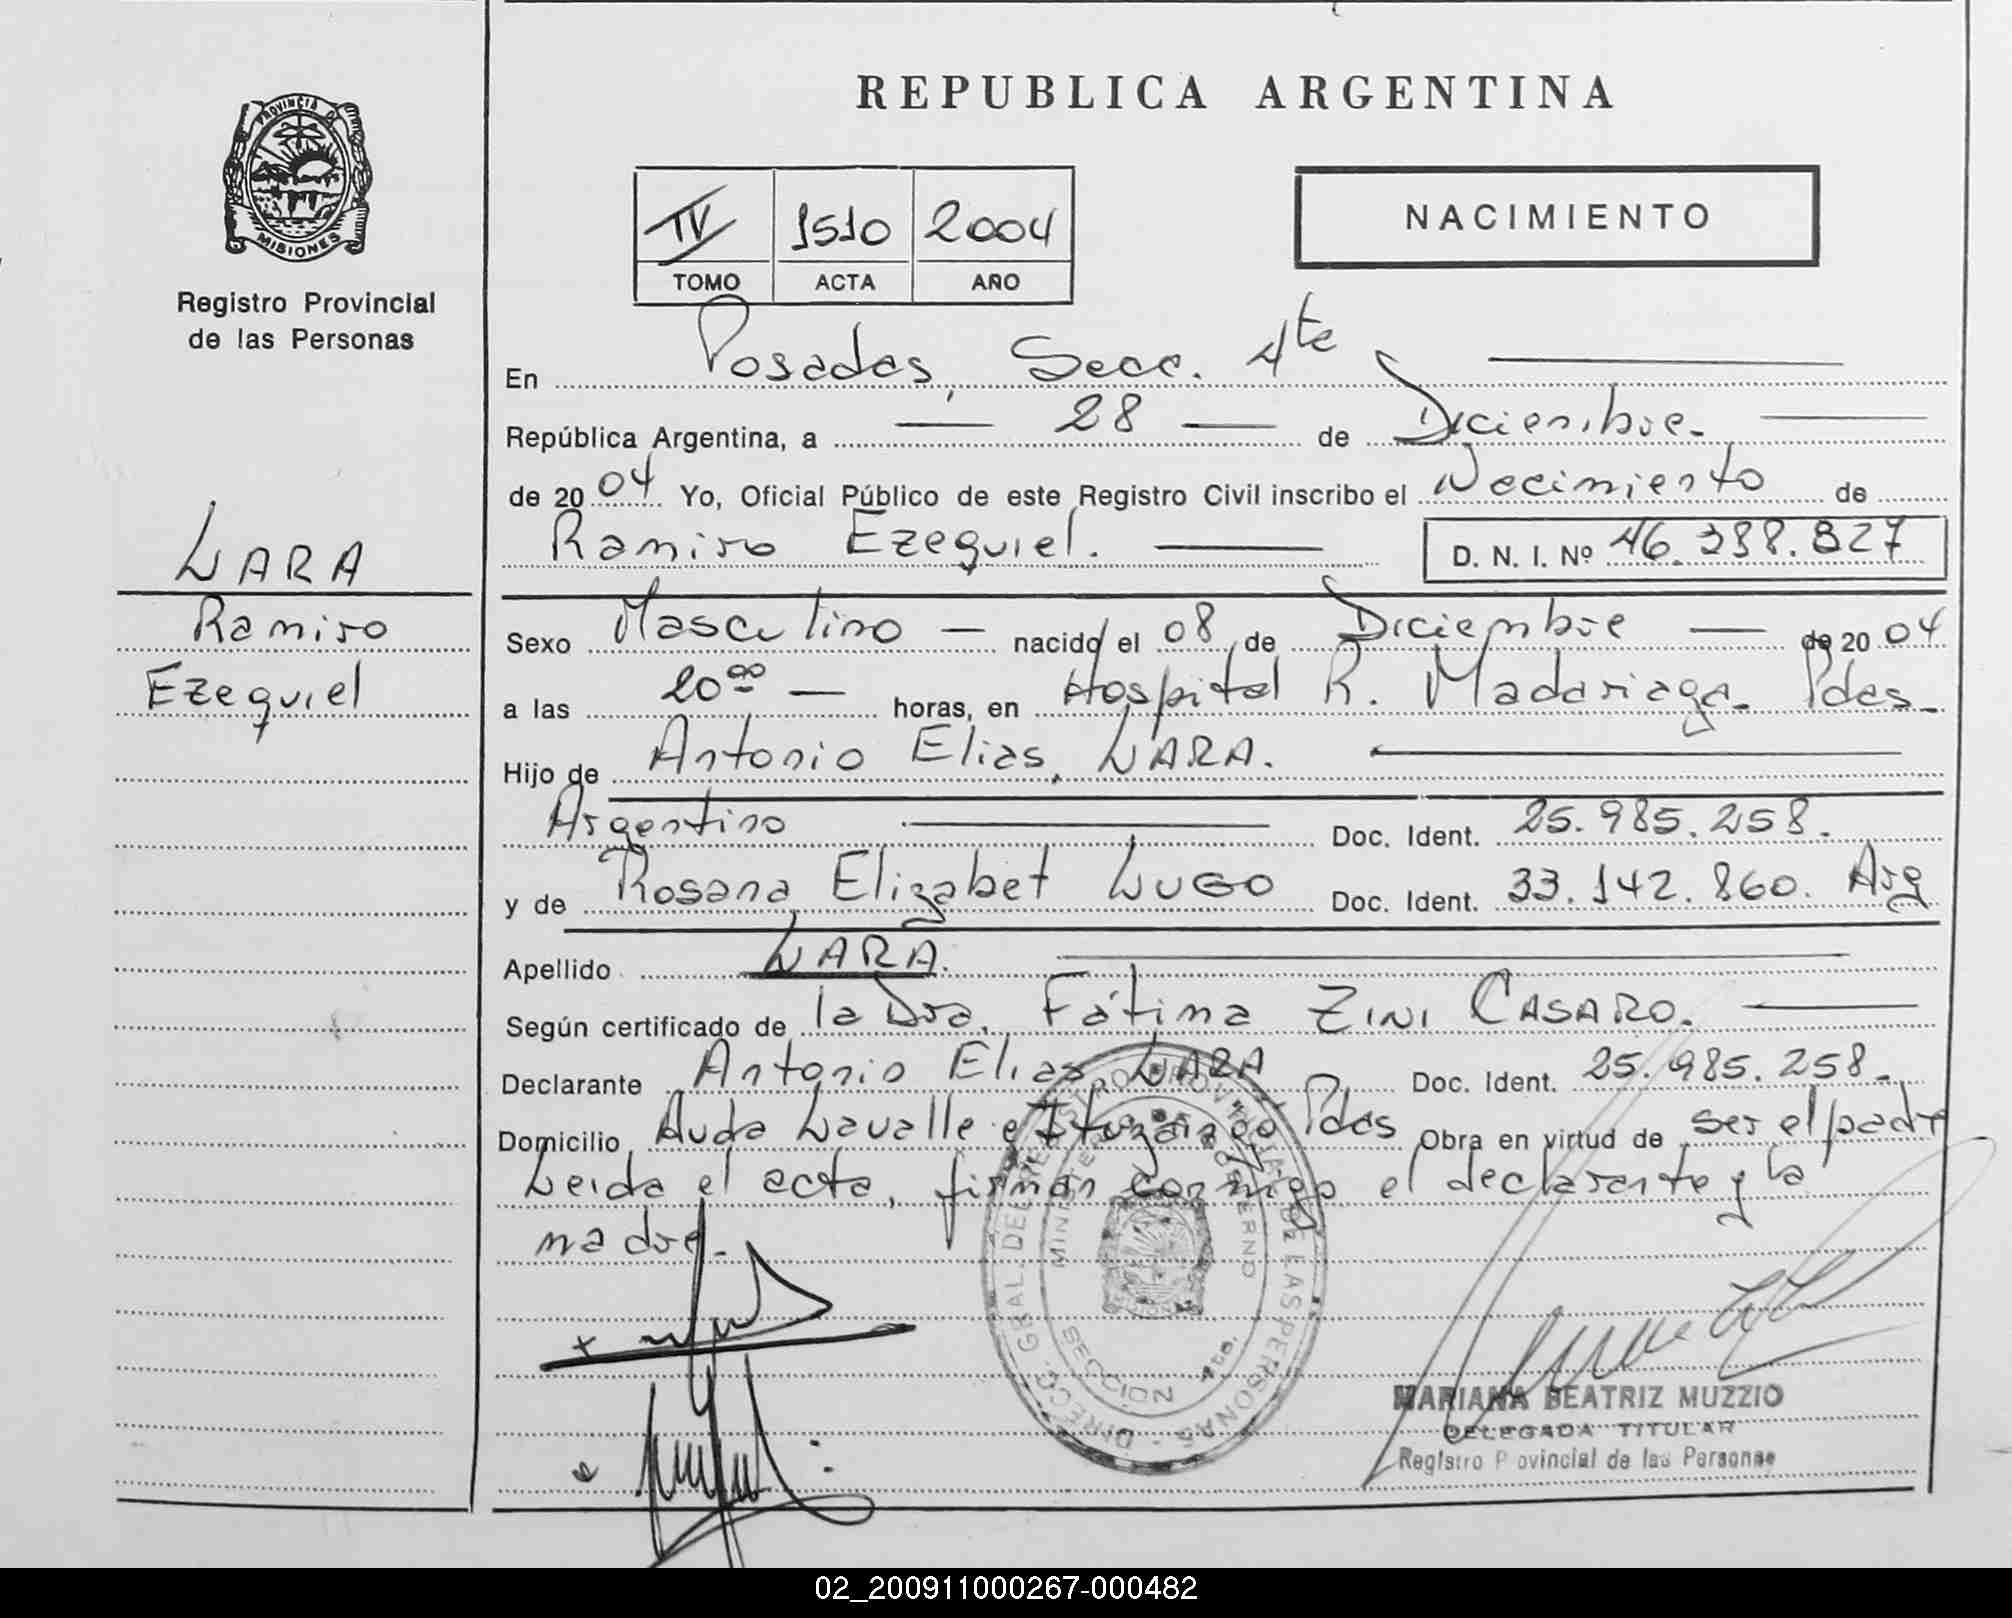 PROVINCIA DE
MISIONES
Registro Provincial
de las Personas
LARA
Ramiro
Ezequiel
REPUBLICA ARGENTINA
IV 1510 2004
TOMO ACTA AÑO
NACIMIENTO
En Posadas, Secc. 4ta
República Argentina, a 28 de Diciembre.
de 2004 Yo, Oficial Público de este Registro Civil inscribo el Nacimiento de
Ramiro Ezequiel. D. N. I. Nº 46.388.827
Sexo Masculino nacido el 08 de Diciembre de 2004
a las 20.00 horas, en Hospital R. Madariaga. Pdas.
Hijo de Antonio Elias, LARA.
Argentino Doc. Ident. 25.985.258.
y de Rosana Elizabet LUGO Doc. Ident. 33.142.860. Arg
Apellido LARA.
Según certificado de la Dra. Fátima ZINI CASARO.
Declarante Antonio Elias LARA Doc. Ident. 25.985.258.
Domicilio Avda Lavalle e Ituzaingo Pdas Obra en virtud de ser el padre
Leida el acta, firman conmigo el declarante y la
madre.
DIRECC. GRAL. DEL REGISTRO PROVINCIAL DE LAS PERSONAS
MINISTERIO DE GOBIERNO
SECCION 4ta.
MARIANA BEATRIZ MUZZIO
DELEGADA TITULAR
Registro Provincial de las Personas
02_200911000267-000482